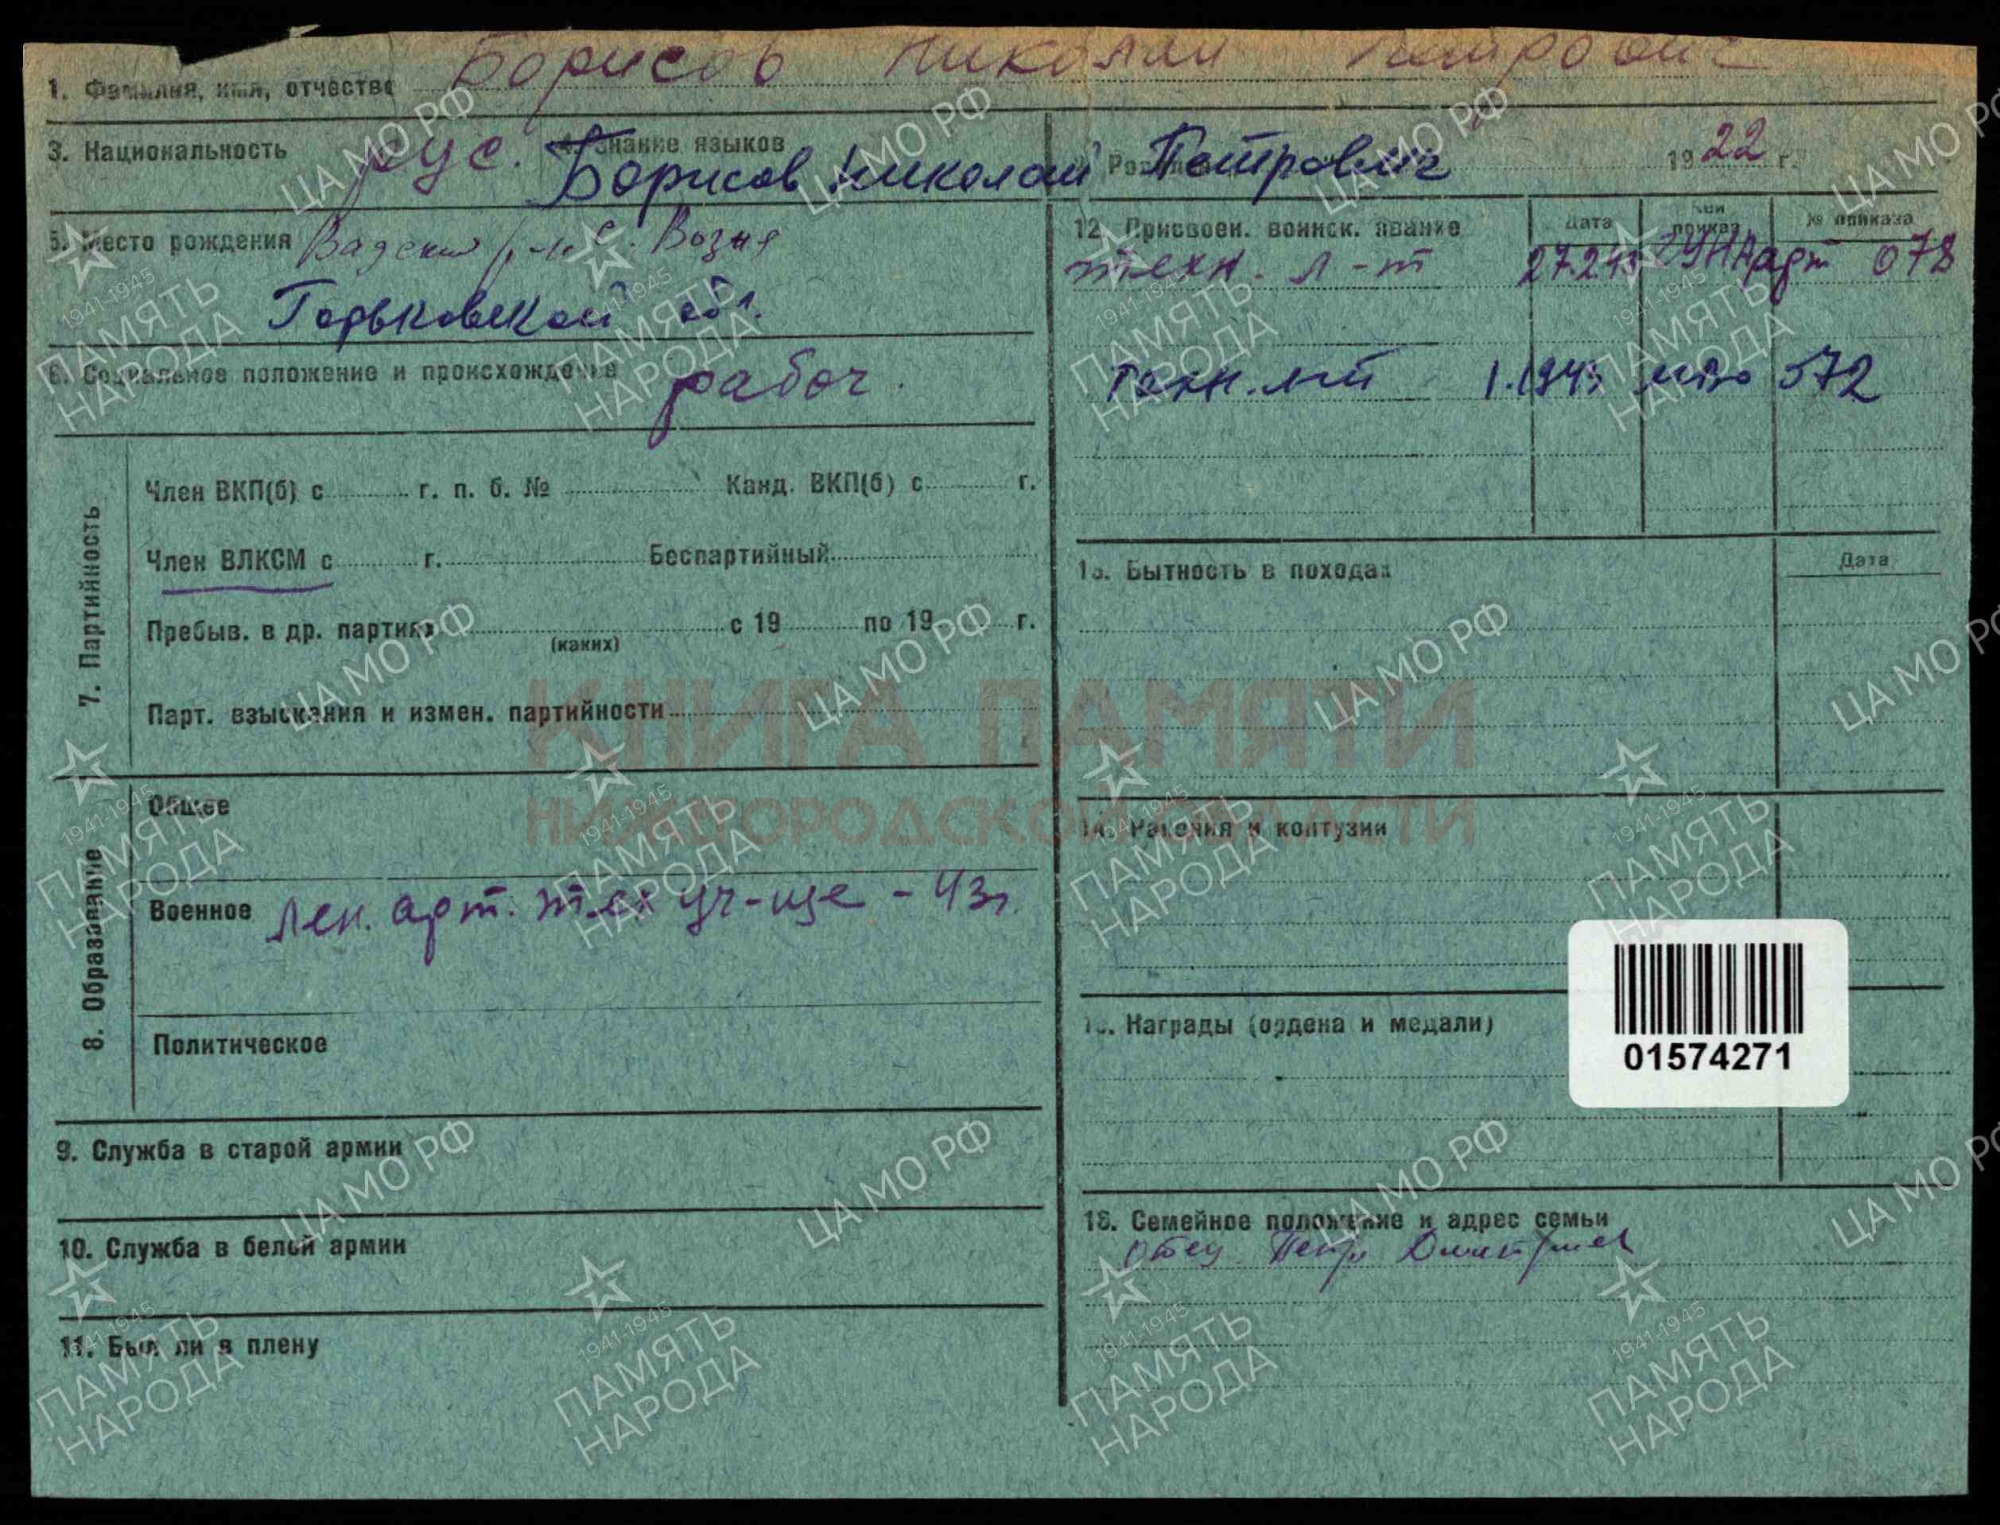 1. Фамилия, имя, отчество Борисов Николай Петрович
3. Национальность рус. 4. Знание языков
Борисов Николай Петрович
1922 г.
5. Место рождения Вадский р-н с. Возня
Горьковской обл.
6. Социальное положение и происхождение рабоч.
7. Партийность
Член ВКП(б) с г. п. б. № Канд. ВКП(б) с г.
Член ВЛКСМ с г. Беспартийный
Пребыв. в др. партиях с 19 по 19 г.
(каких)
Парт. взыскания и измен. партийности
8. Образование
Общее
Военное Лен. арт. тех уч-ще - 43г.
Политическое
9. Служба в старой армии
10. Служба в белой армии
11. Был ли в плену
12. Присвоен. воинск. звание Дата Чей приказ № приказа
техн. л-т 27.2.43 ГУНАрт 078
техн. л-т 1.1943 МВО 572
13. Бытность в походах Дата
14. Ранения и контузии
15. Награды (ордена и медали)
01574271
16. Семейное положение и адрес семьи
отец Петр Дмитриев
КНИГА ПАМЯТИ
НИЖЕГОРОДСКОЙ ОБЛАСТИ
ЦА МО РФ
1941-1945
ПАМЯТЬ
НАРОДА